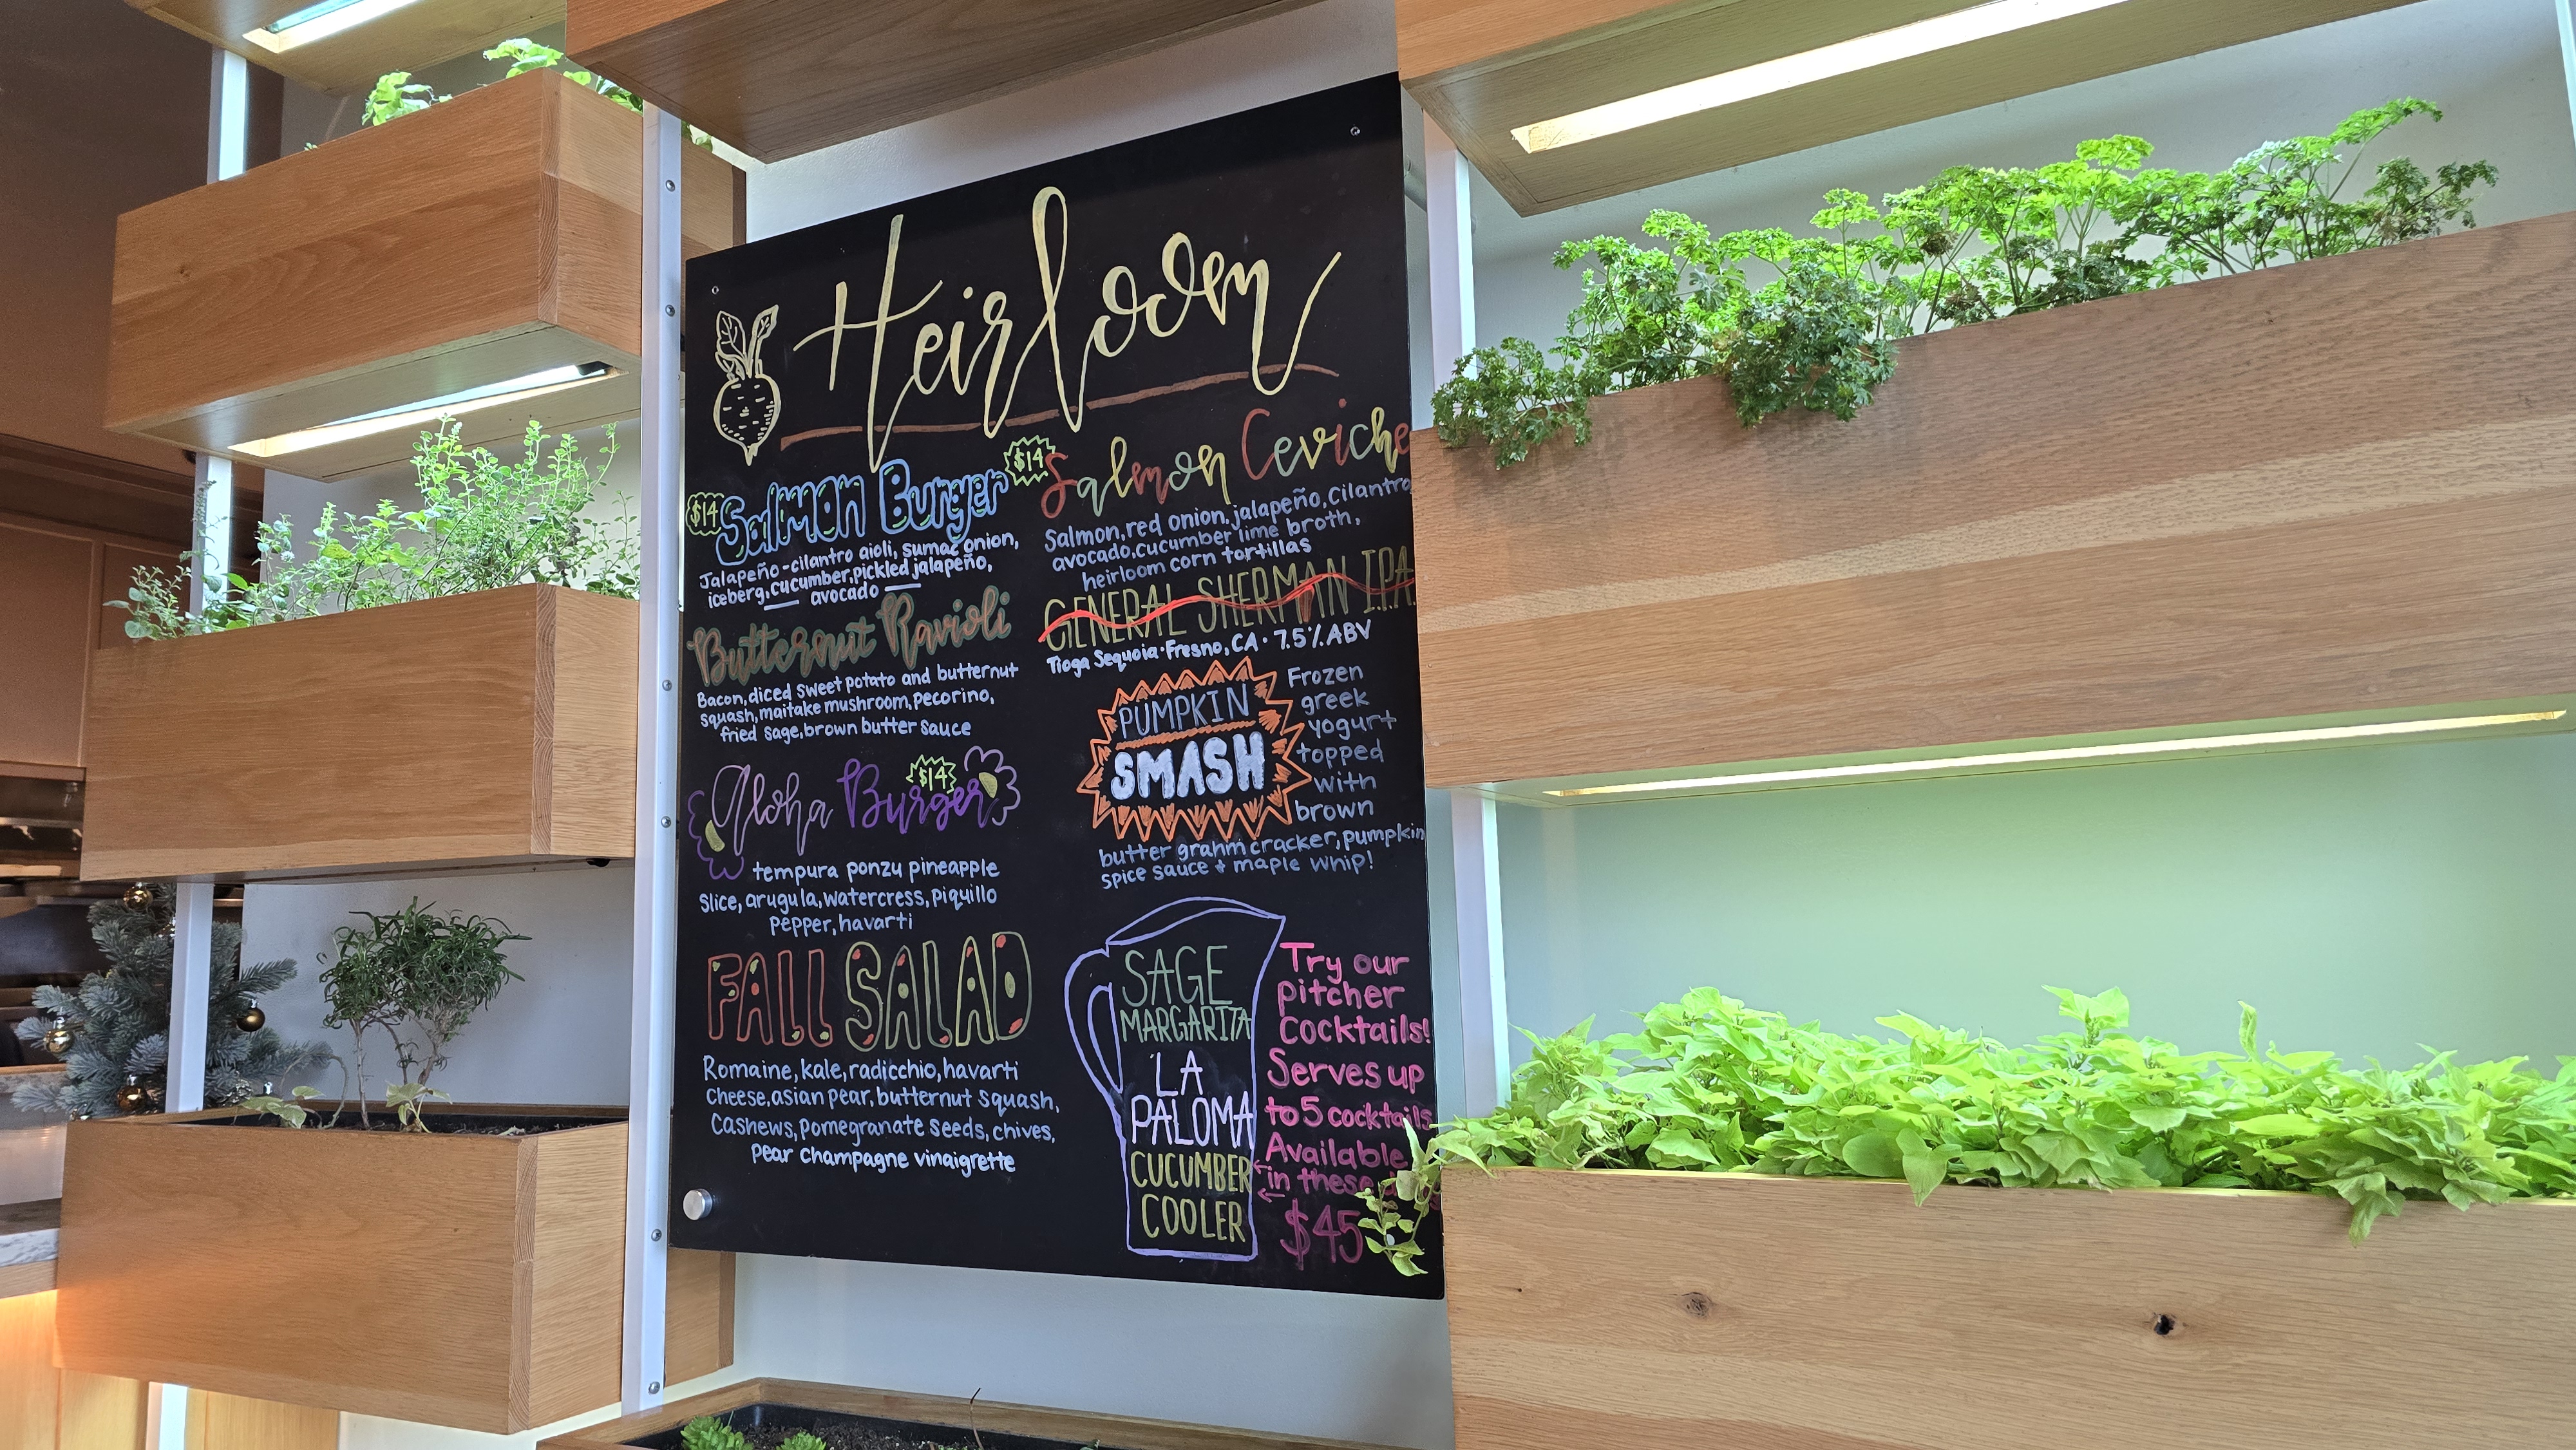 Heirloom
$14 Salmon Burger
Jalapeño-cilantro aioli, sumac onion,
iceberg, cucumber, pickled jalapeño,
avocado
Butternut Ravioli
Bacon, diced sweet potato and butternut
squash, maitake mushroom, pecorino,
fried sage, brown butter sauce
Aloha Burger $14
tempura ponzu pineapple
Slice, arugula, watercress, piquillo
Pepper, havarti
FALL SALAD
Romaine, kale, radicchio, havarti
Cheese, asian pear, butternut squash,
Cashews, pomegranate seeds, chives,
Pear champagne vinaigrette
$14 Salmon Ceviche
Salmon, red onion, jalapeño, cilantro
avocado, cucumber lime broth,
heirloom corn tortillas
GENERAL SHERMAN I.P.A.
Tioga Sequoia · Fresno, CA · 7.5% ABV
PUMPKIN
SMASH
Frozen
greek
yogurt
topped
with
brown
butter grahm cracker, pumpkin
spice sauce + maple whip!
SAGE
MARGARITA
LA
PALOMA
CUCUMBER
COOLER
Try our
pitcher
Cocktails!
Serves up
to 5 cocktails
Available
in these
$45